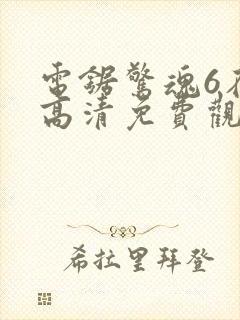 電鋸驚魂6
高清免費觀
希拉里拜登